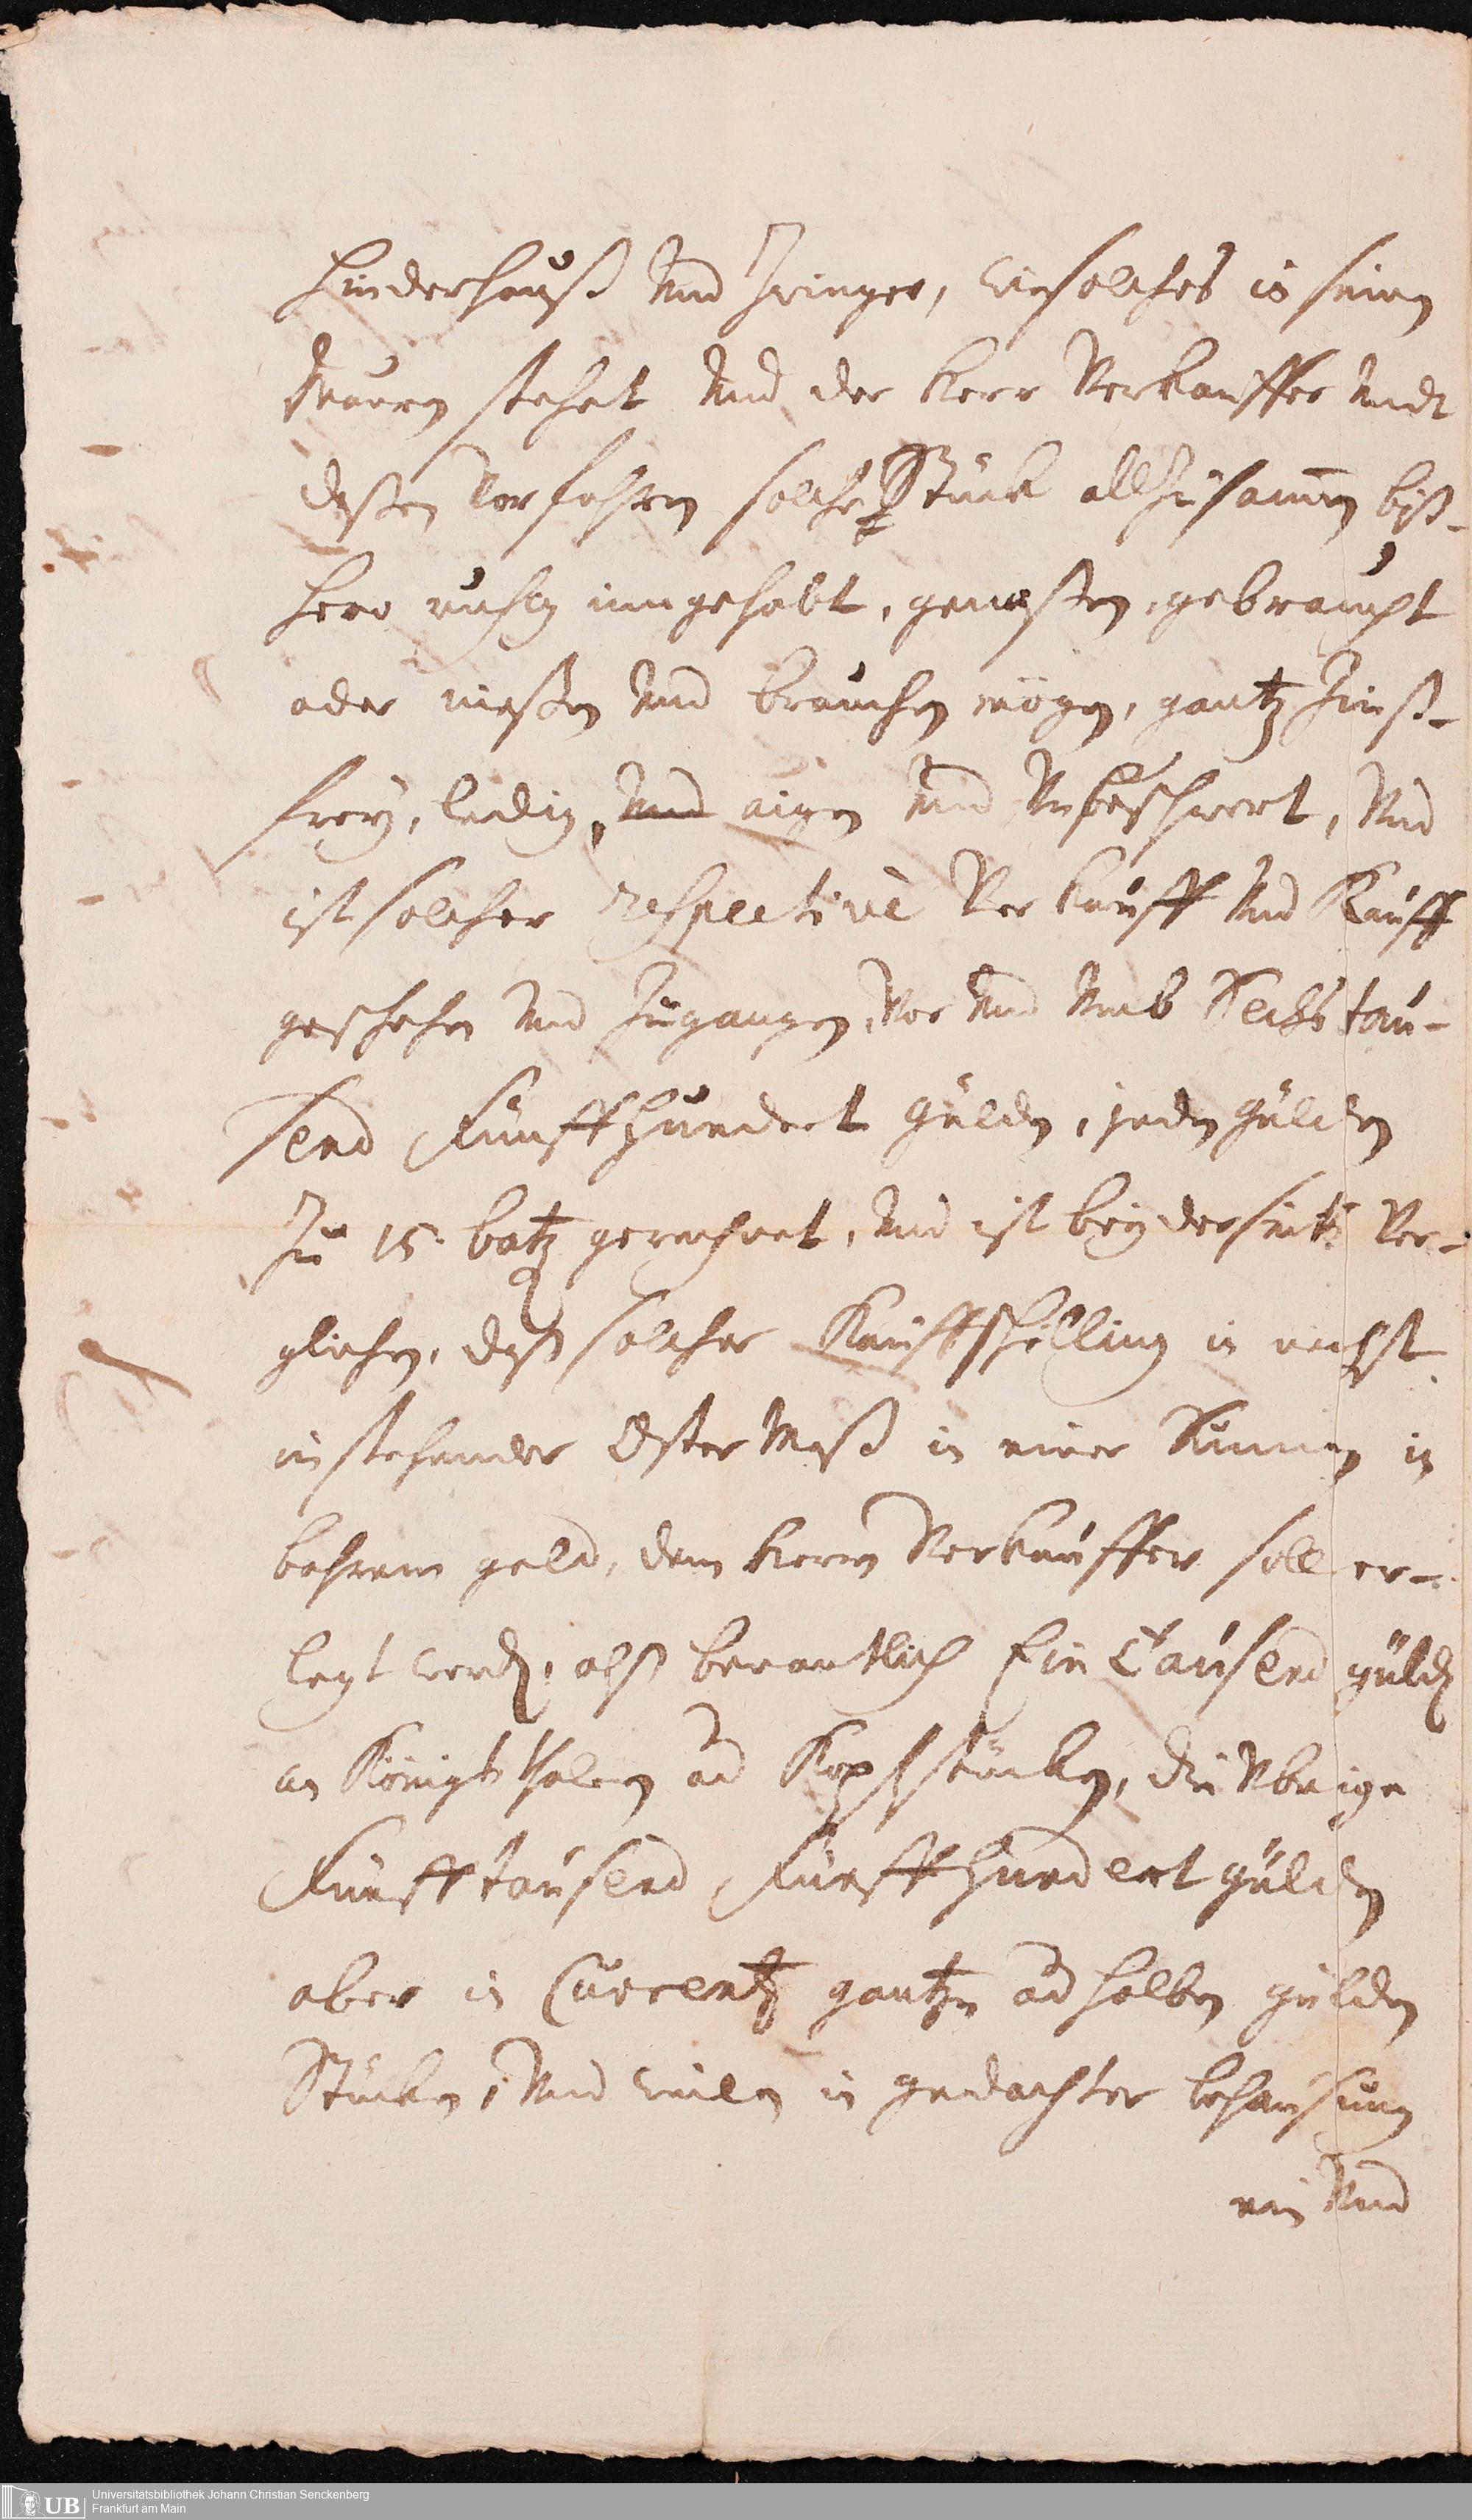 Hinderhauß Und Zwinger, wie solches in seinen
Mauren stehet Und der Herr Verkauffer Undt
deßen Vorfahren solche Stück allzusamen biß-
hero ruhig inngehabt, genoßen, gebraucht
oder nießen Und brauchen mögen, gantz Zinß-
frey, ledig, Und eigen Und Unbeschwert, Und
ist solcher respectivè Verkauff Und Kauff
geschehen Und Zugangen, Vor Und Umb Sechstau-
send Fünffhundert gülden, jeden gülden
Zu 15. batz gerechnet, Und ist beyderseits Ver-
glichen, daß solcher Kauffschilling in nechst
instehender OsterMeß in einer Summen in
bahrem geld, dem Herrn Verkauffer soll er-
legt werden, alß benantlich Ein Tausend gülden
an Königsthalern und Kopfstücken, die Ubrige
Fünfftausend Fünffhundert gülden
aber in Currentz gantzen und halben gülden
Stücken, Und weilen in gedachter behausung
ein Und
Universitätsbibliothek Johann Christian Senckenberg
Frankfurt am Main
UB